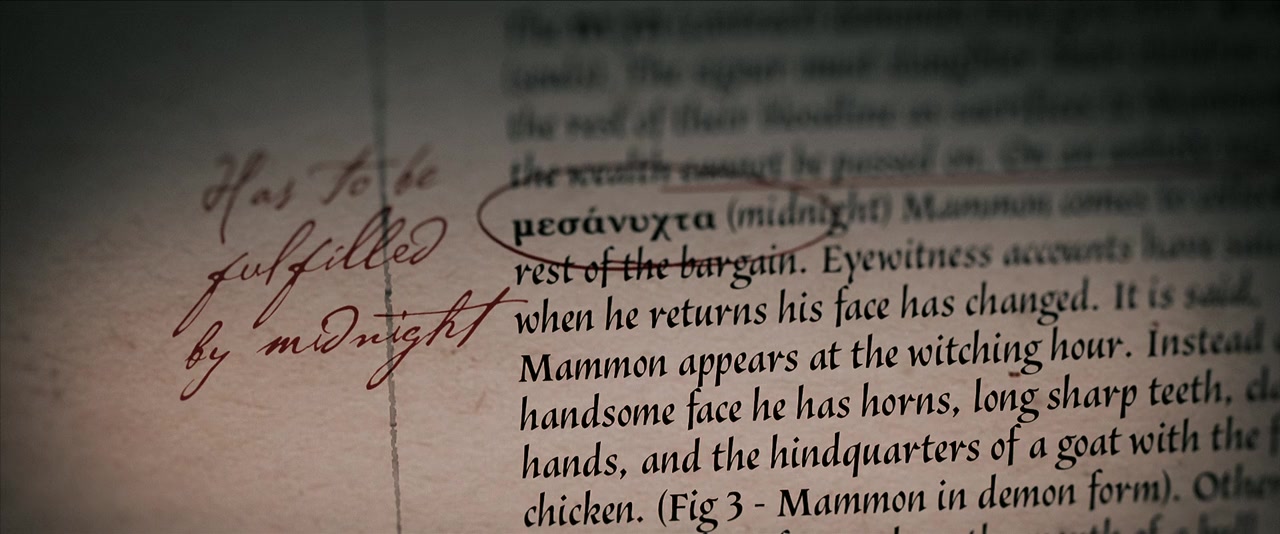 Has to be
fulfilled
by midnight
the rest of their bloodline as sacrifice to Mammon
the wealth cannot be passed on. On an
μεσάνυχτα (midnight) Mammon comes to
rest of the bargain. Eyewitness accounts have
when he returns his face has changed. It is said,
Mammon appears at the witching hour. Instead
handsome face he has horns, long sharp teeth,
hands, and the hindquarters of a goat with the
chicken. (Fig 3 - Mammon in demon form).